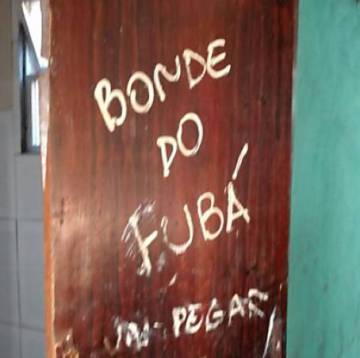 BONDE
DO
FUBÁ
VAI PEGAR